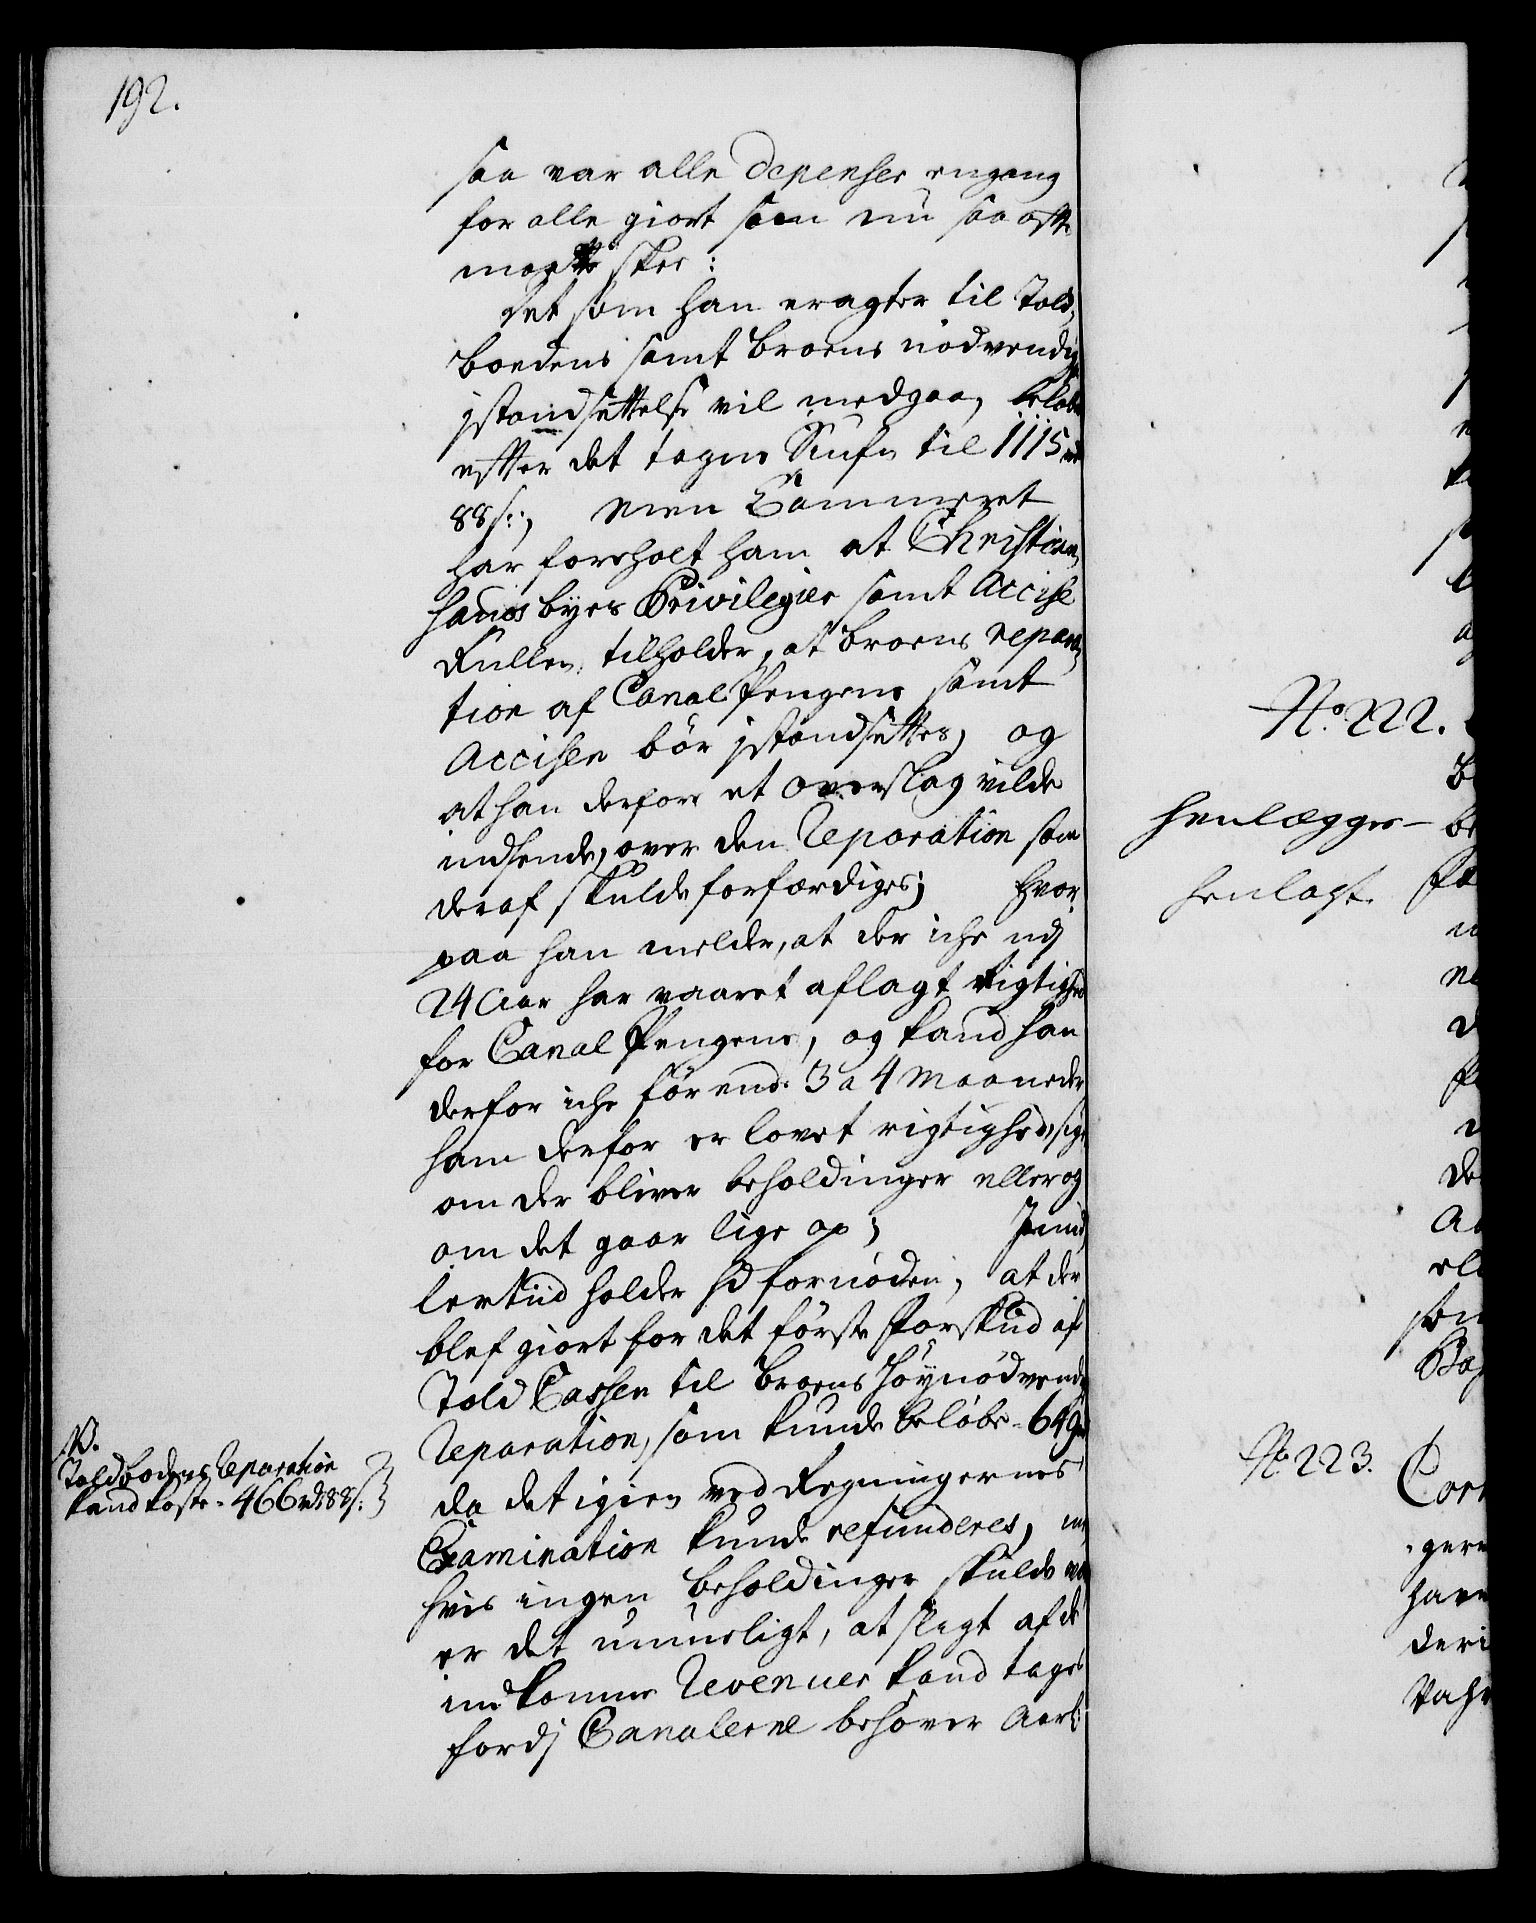 192.
saa var alle Depenser engang
for alle giort som nu saa ofte
maatte skee:
Det som han eragter til Told,
boedens samt broens nödvendige
jstandsettelse vil medgaa, beløber
efter det tagne Siufn til 1115 rd
88 s:, men Cammeret
har foreholt ham at Christian,
hauns byes Privilegier samt Accise
Rullen tilholder, at broens repara,
tion af Canal Pengene samt
Accisen bör jstandsettes, og
at han derfore et overslag vilde
indsende, over den Reparation som
deraf skulde forfærdiges; hvor,
paa han melder, at der iche udj
24 Aar har vaaret aflagt Rigtighed
for Canal Pengene, og kand han
derfor iche för end 3 a 4 Maaneder
ham derfor er lovet rigtighed, sige
om der bliver beholdinger eller og
om det gaar lige op; Imid,
lertiid holder hd fornöden, at der
blef giort for det förste Forskud af
Told Cassen til broens höynödvendig
Reparation, som kunde belöbe 649
da det igien ved Regningernes
Examination kunde refunderes, men
hvis ingen beholdinger skulde være
er det umueligt, at sligt af de
indkomne Revenuer kand tages
fordj Canalerne behöver Aarl:
NB.
Toldbodens Reparation
kand koste 466 rd 88 s:
No. 222.
henlægges
henlagt.
No 223.